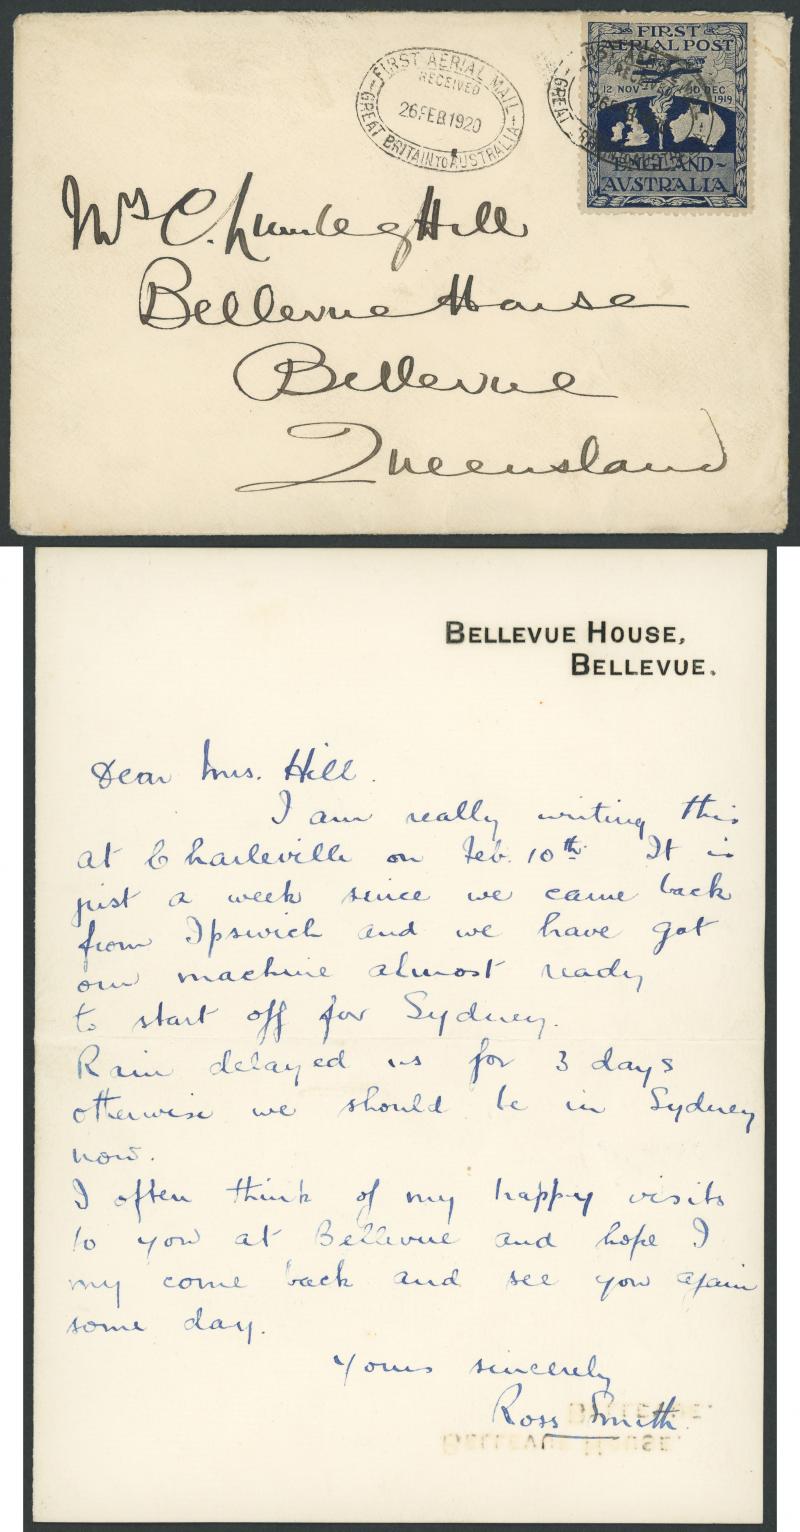 FIRST AERIAL MAIL
RECEIVED
26 FEB 1920
GREAT BRITAIN TO AUSTRALIA
FIRST
AERIAL POST
12 NOV 10 DEC
1919
ENGLAND-
AUSTRALIA
Mrs C. Lumley Hill
Bellevue House
Bellevue
Queensland
BELLEVUE HOUSE,
BELLEVUE.
Dear Mrs. Hill.
I am really writing this
at Charleville on Feb. 10th. It is
just a week since we came back
from Ipswich and we have got
our machine almost ready
to start off for Sydney.
Rain delayed us for 3 days
otherwise we should be in Sydney
now.
I often think of my happy visits
to you at Bellevue and hope I
my come back and see you again
some day.
Yours sincerely
Ross Smith.